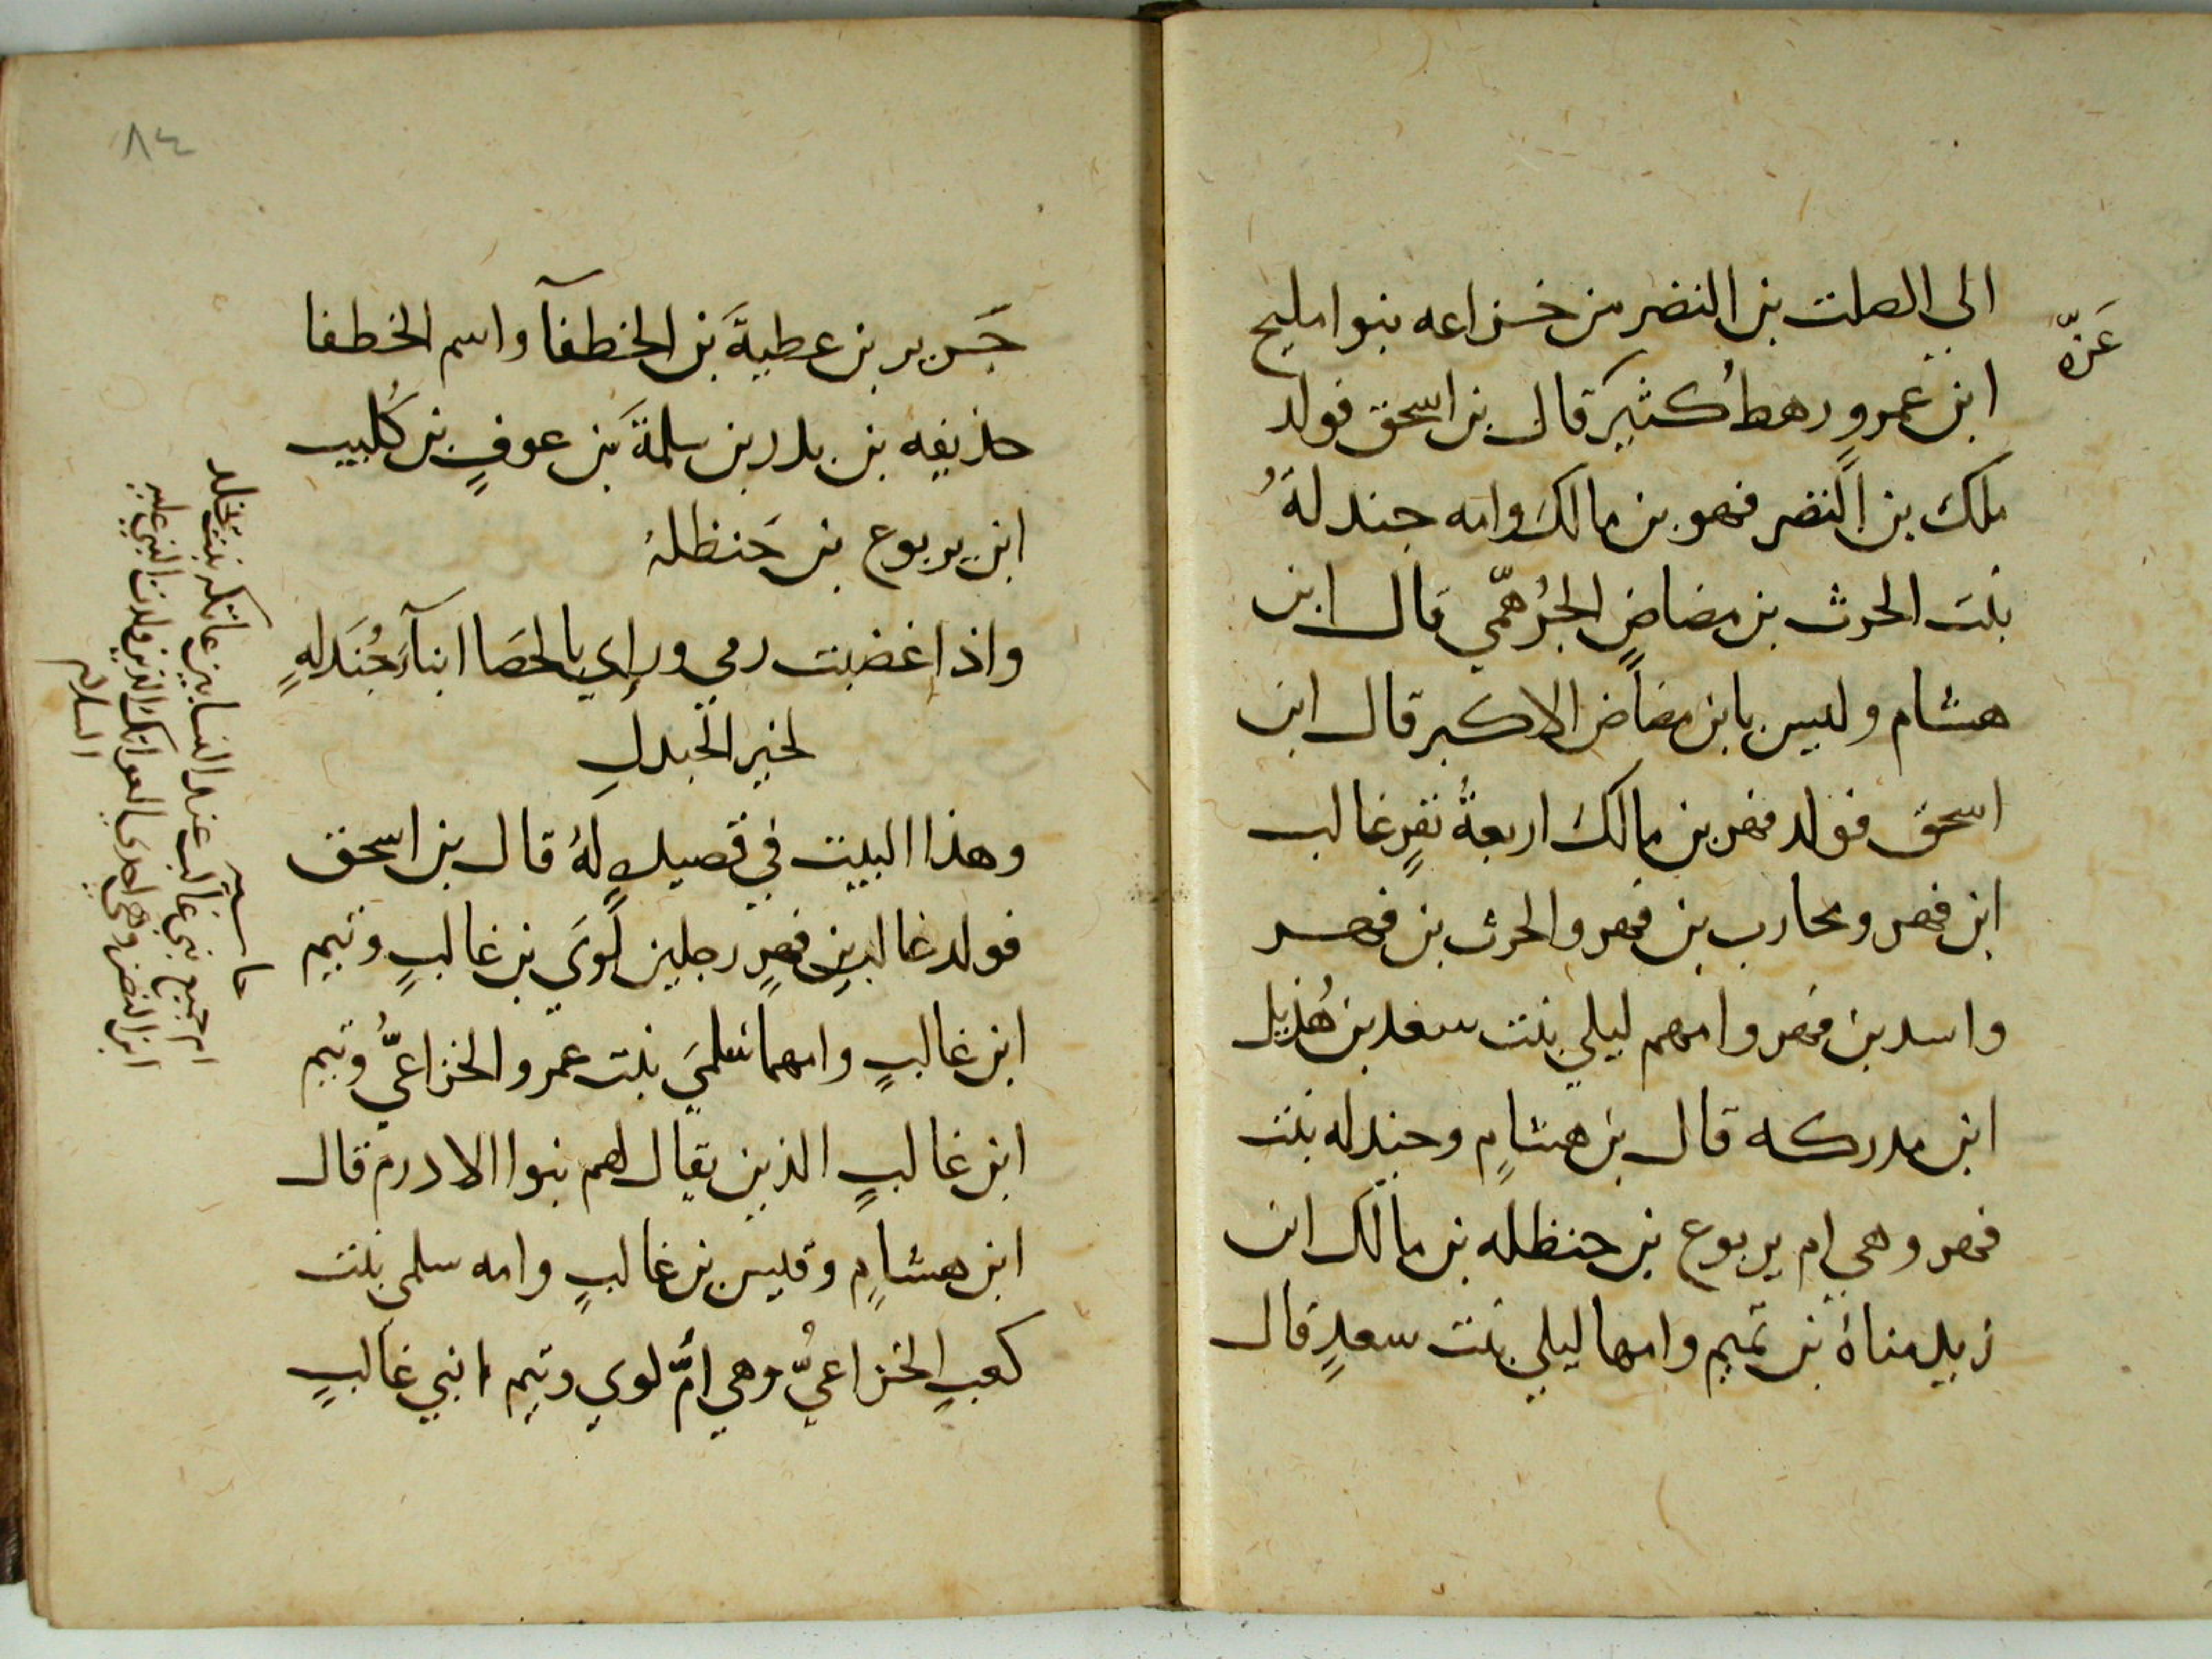 الي الصلت بن النضر من خزاعه بنوا مليح
عَزّه
ابن عمرٍو رهط كثيّر قال بن اسحق فولد
ملك بن النضر فهر بن مالك وامه جندلةُ
بنت الحرث بن مضاضٍ الجُرهمّي قال ابن
هشام وليس بابن مضاض الاكبر قال ابن
اسحق فولد فهر بن مالك اربعةُ نفرٍ غالب
ابن فهر ومحارب بن فهر والحرث بن فهر
واسد بن فهر وامهم ليلي بنت سعد بن هُذيل
ابن مدركه قال بن هشامٍ وجندله بنت
فهر وهي ام يربوع بن حنظله بن مالك ابن
زيد مناة بن تميم وامها ليلي بنت سعدٍ قال
٨٤
جَرير بن عطيةَ بن الخطفآ واسم الخطفا
حذيفه بن بدر بن سلمةَ بن عوفٍ بن كُليب
ابن يربوع بن حَنظلة
واذا غضبت رمي وراي بالحصَا ابنآءَ جُندَلهٍ
لخير الجندلِ
وهذا البيت في قصيدهٍ لهُ قال بن اسحق
فولد غالب بن فهرٍ رجلين لُوَي بن غالبٍ وتيم
ابن غالبٍ وامهما سلميَ بنت عمرو الخزاعيُّ وتيم
ابن غالبٍ الذين يقال لهم بنوا الادرم قال
ابن هشامٍ وقيس بن غالبٍ وامه سلمي بنت
كعبٍ الخزاعيُّ وهي امُّ لوي وتيم ابني غالبٍ
حاشيه
ام جميع بني غالب عند النسابين عاتكه بنت يخلد
ابن النضر وهي احدي العواتك الذين ولدت النبي عليه
السلام